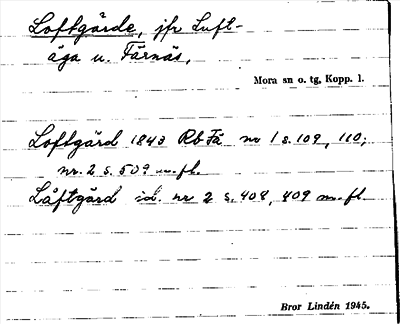 Loftgärde, jfr Luft-
äga u. Färnäs.
Mora sn o. tg, Kopp. l.
Loftgärd 1843 Rb Fä nr 1 s. 109, 110;
nr. 2 s. 509 m. fl.
Låftgärd id. nr 2 s. 408, 409 m. fl.
Bror Lindén 1945.